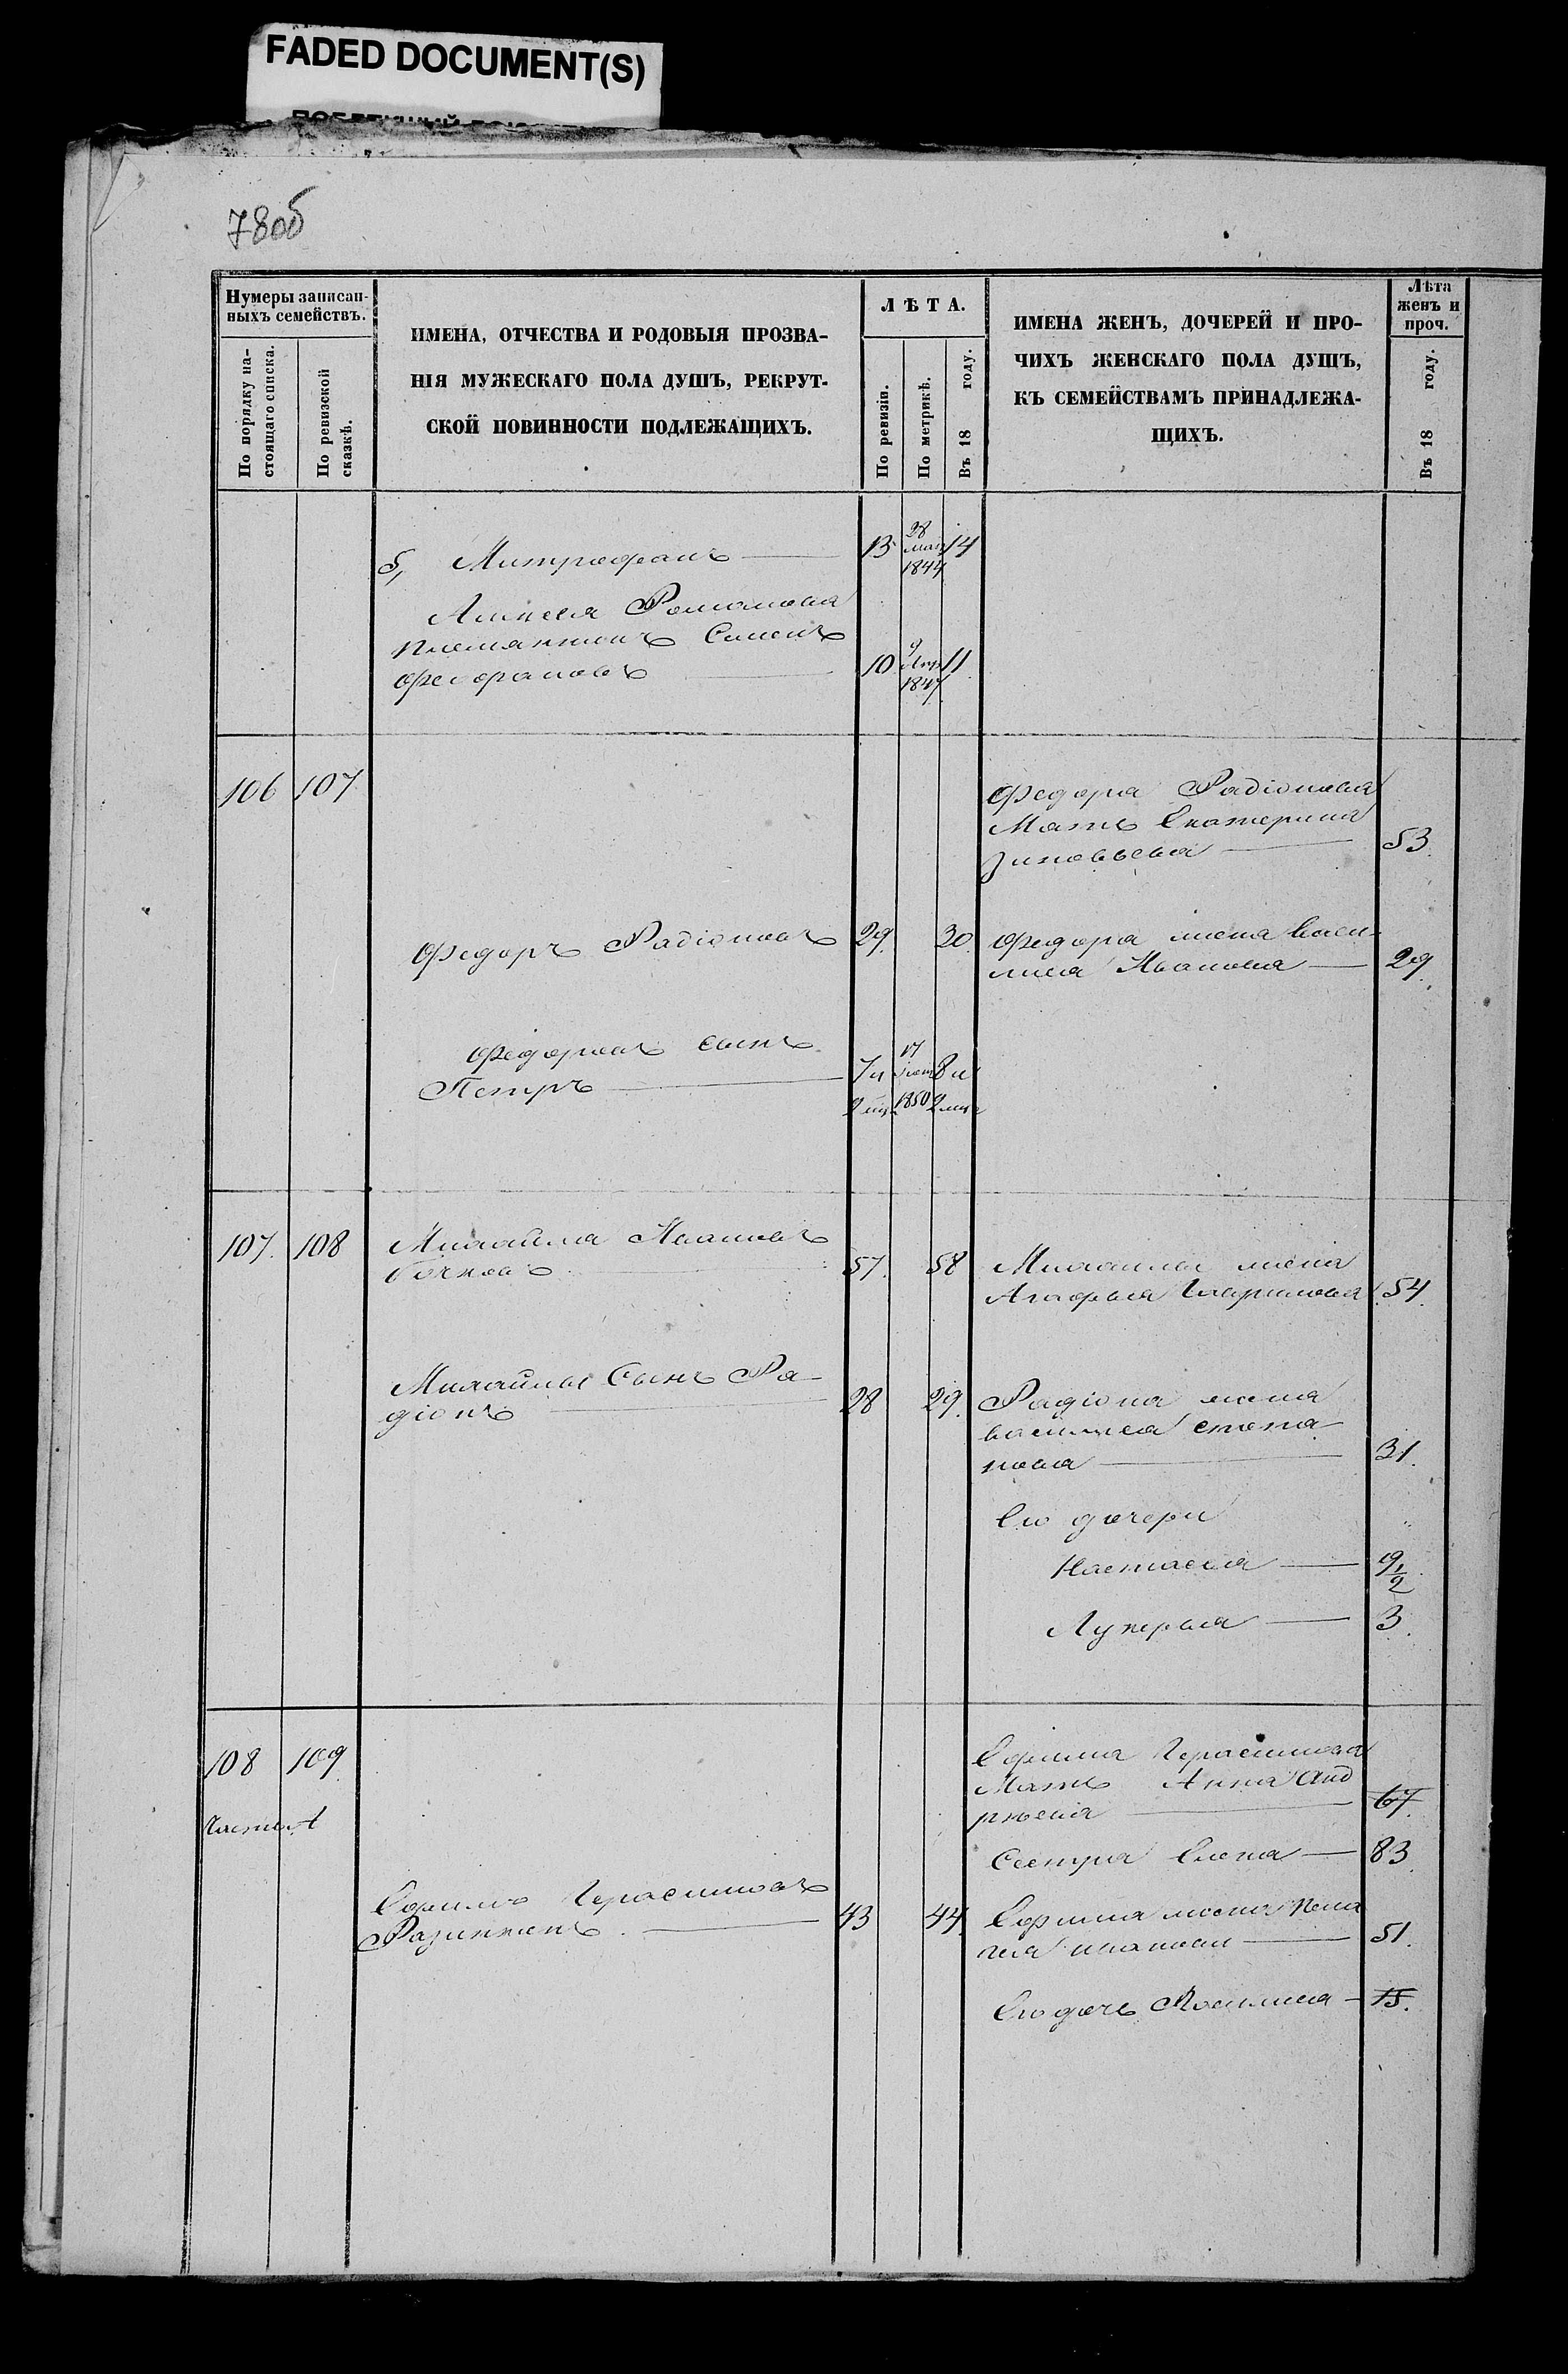 FADED DOCUMENT(S)
78об
Нумеры записан-
ныхъ семействъ.
По порядку на-
стоящаго списка.
По ревизской
сказкѣ.
ИМЕНА, ОТЧЕСТВА И РОДОВЫЯ ПРОЗВА-
НІЯ МУЖЕСКАГО ПОЛА ДУШЪ, РЕКРУТ-
СКОЙ ПОВИННОСТИ ПОДЛЕЖАЩИХЪ.
ЛѢТА.
По ревизіи.
По метрикѣ.
Въ 18 году.
ИМЕНА ЖЕНЪ, ДОЧЕРЕЙ И ПРО-
ЧИХЪ ЖЕНСКАГО ПОЛА ДУШЪ,
КЪ СЕМЕЙСТВАМЪ ПРИНАДЛЕЖА-
ЩИХЪ.
Лѣта
женъ и
проч.
Въ 18 году.
б, Митрофанъ 13 28 мая 1844 14
Алексея Романова
племянникъ Семенъ
Федоровъ 10 9 1847 11
106 107
Федора Радіонова
Мать Екатерина
Зиновьева 53.
Федоръ Радіоновъ 29. 30.
Федора жена Васи-
лиса Иванова 29.
Федоровъ сынъ
Петръ 7 л 17 8 л
2 мц 1850 2 мца
107. 108
Михайла Ивановъ
Бочковъ 57. 58
Михайлы жена
Агафья 54.
Михайлы Сынъ Ра-
діонъ 28 29.
Радіона жена
Василиса Степа
нова 31.
Его дочери
Настасья 9 1/2
Лукерья 3.
108 109
Ефима Герасимова
Мать Анна Анд
рѣева 67.
Сестра Елена 83.
Ефимъ Герасимовъ
Разинкинъ 43 44.
Ефима жена Пела
гея Иванова 51.
Его дочь Василиса 15.